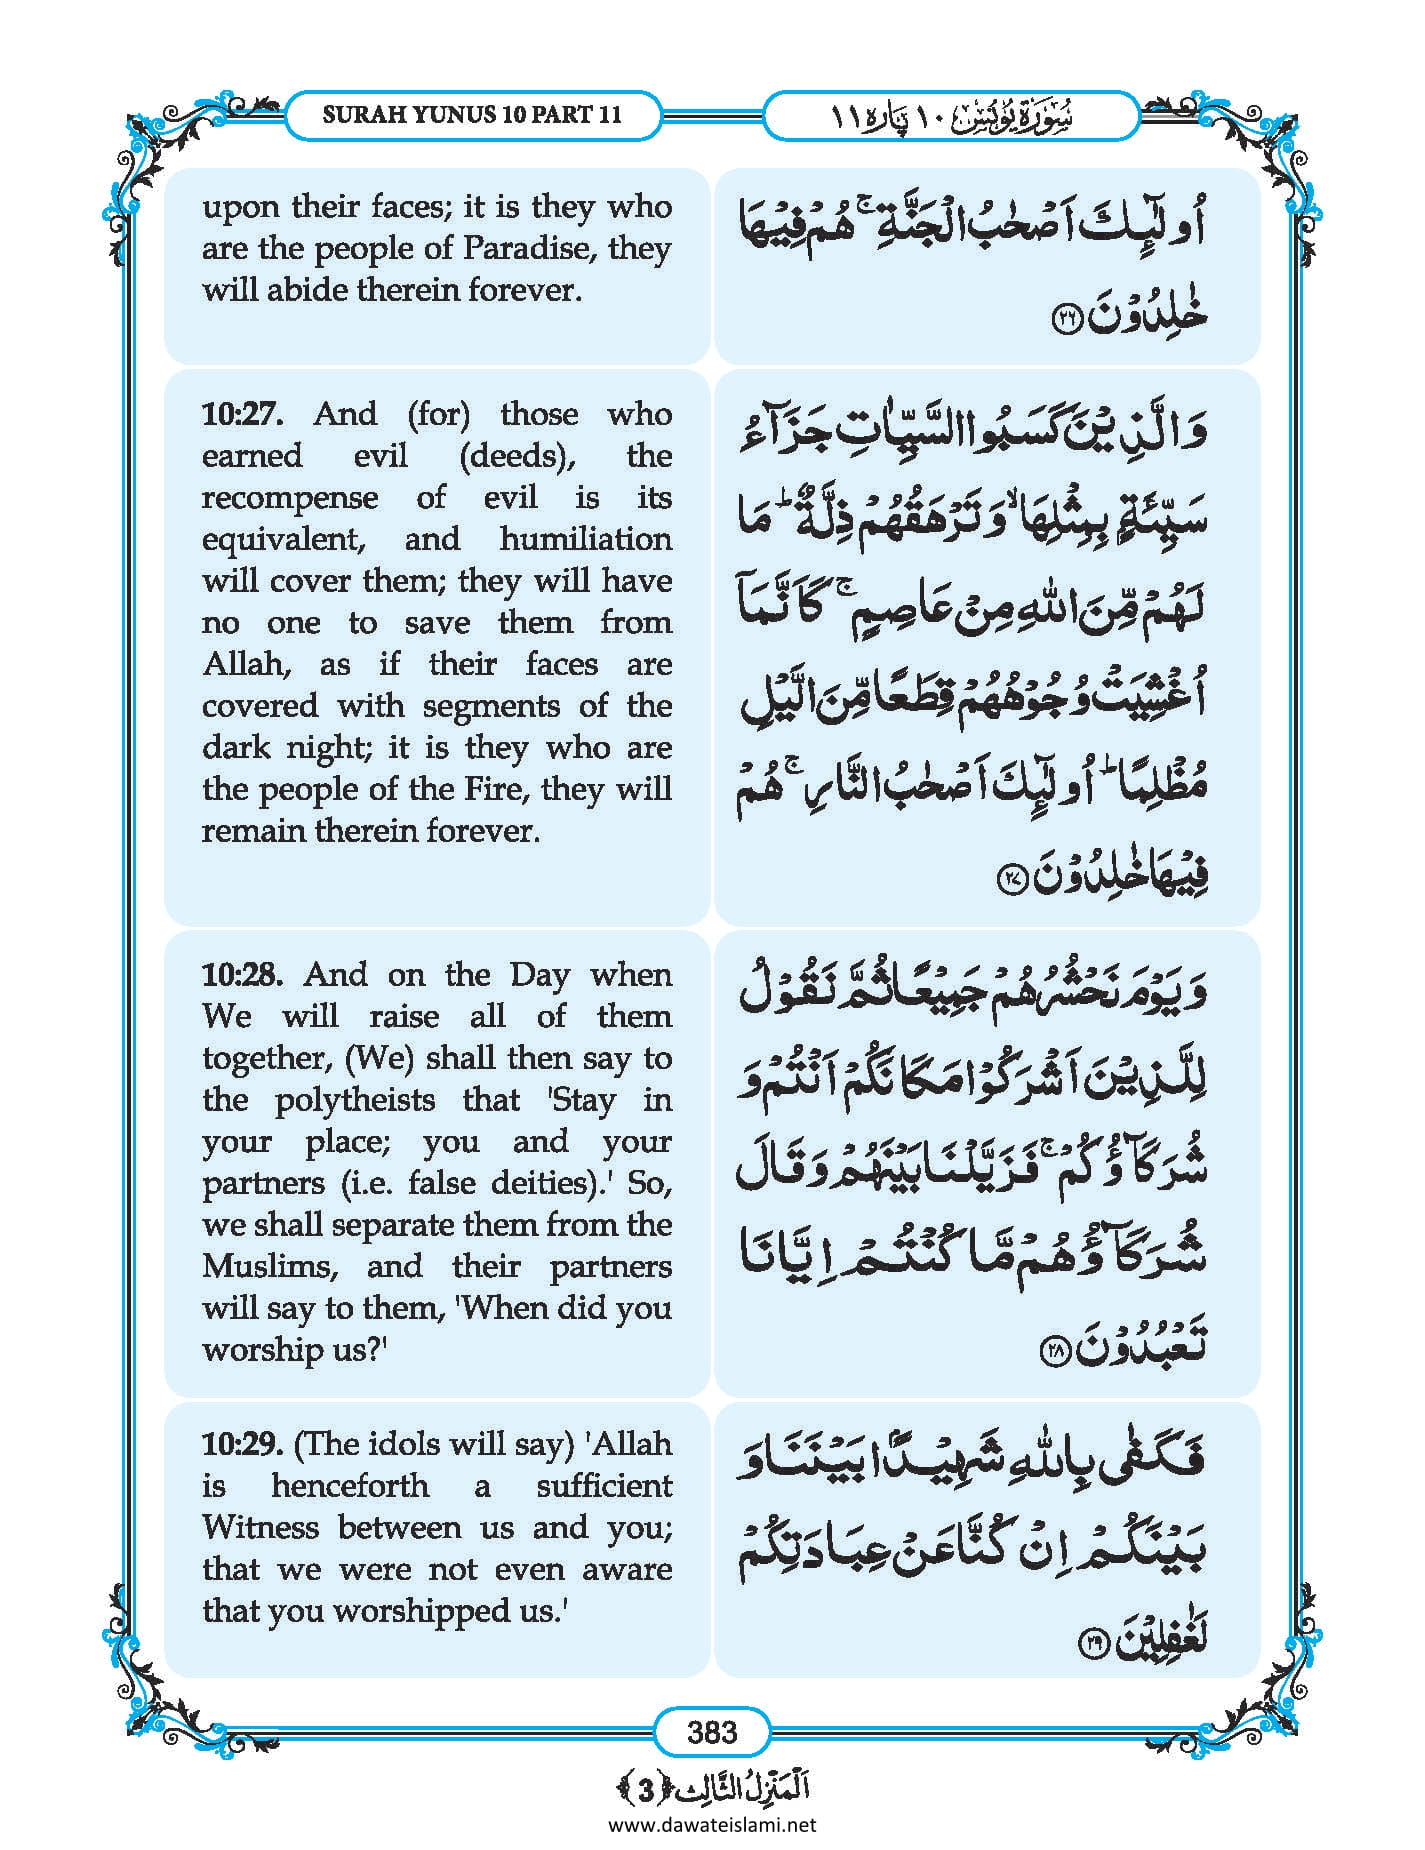 SURAH YUNUS 10 PART 11
سُوْرَةُ يُوْنُس ١٠ پاره ١١
upon their faces; it is they who
are the people of Paradise, they
will abide therein forever.
اُولٰٓئِكَ اَصْحٰبُ الْجَنَّةِ ۚ هُمْ فِیْهَا
خٰلِدُوْنَ ﴿۲۶﴾
10:27. And (for) those who
earned evil (deeds), the
recompense of evil is its
equivalent, and humiliation
will cover them; they will have
no one to save them from
Allah, as if their faces are
covered with segments of the
dark night; it is they who are
the people of the Fire, they will
remain therein forever.
وَالَّذِیْنَ كَسَبُوا السَّیِّاٰتِ جَزَآءُ
سَیِّئَةٍۭ بِمِثْلِهَا ۙ وَ تَرْهَقُهُمْ ذِلَّةٌ ؕ مَا
لَهُمْ مِّنَ اللهِ مِنْ عَاصِمٍ ۚ كَاَنَّمَاۤ
اُغْشِیَتْ وُجُوْهُهُمْ قِطَعًا مِّنَ الَّیْلِ
مُظْلِمًا ؕ اُولٰٓئِكَ اَصْحٰبُ النَّارِ ۚ هُمْ
فِیْهَا خٰلِدُوْنَ ﴿۲۷﴾
10:28. And on the Day when
We will raise all of them
together, (We) shall then say to
the polytheists that 'Stay in
your place; you and your
partners (i.e. false deities).' So,
we shall separate them from the
Muslims, and their partners
will say to them, 'When did you
worship us?'
وَ یَوْمَ نَحْشُرُهُمْ جَمِیْعًا ثُمَّ نَقُوْلُ
لِلَّذِیْنَ اَشْرَكُوْا مَكَانَكُمْ اَنْتُمْ وَ
شُرَكَآؤُكُمْ ۚ فَزَیَّلْنَا بَیْنَهُمْ وَ قَالَ
شُرَكَآؤُهُمْ مَّا كُنْتُمْ اِیَّانَا
تَعْبُدُوْنَ ﴿۲۸﴾
10:29. (The idols will say) 'Allah
is henceforth a sufficient
Witness between us and you;
that we were not even aware
that you worshipped us.'
فَكَفٰی بِاللهِ شَهِیْدًۢا بَیْنَنَا وَ
بَیْنَكُمْ اِنْ كُنَّا عَنْ عِبَادَتِكُمْ
لَغٰفِلِیْنَ ﴿۲۹﴾
383
اَلْمَنْزِلُ الثَّالِث ﴿3﴾
www.dawateislami.net